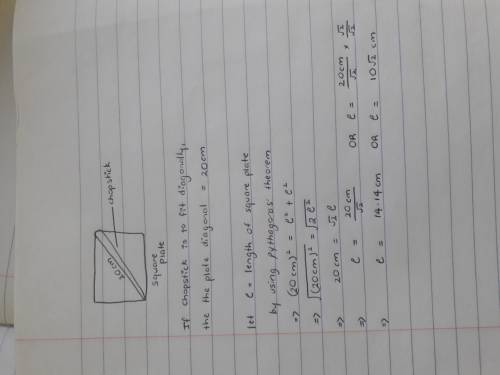 20cm
chopstick
Square
Plate
If chopstick is to fit diagonally,
the the plate diagonal = 20cm
let ℓ = length of square plate
by using Pythagoras' theorem
=> (20cm)² = ℓ² + ℓ²
=> √(20cm)² = √2ℓ²
=> 20cm = √2 ℓ
=> ℓ = 20cm/√2 OR ℓ = 20cm/√2 × √2/√2
=> ℓ = 14.14cm OR ℓ = 10√2 cm